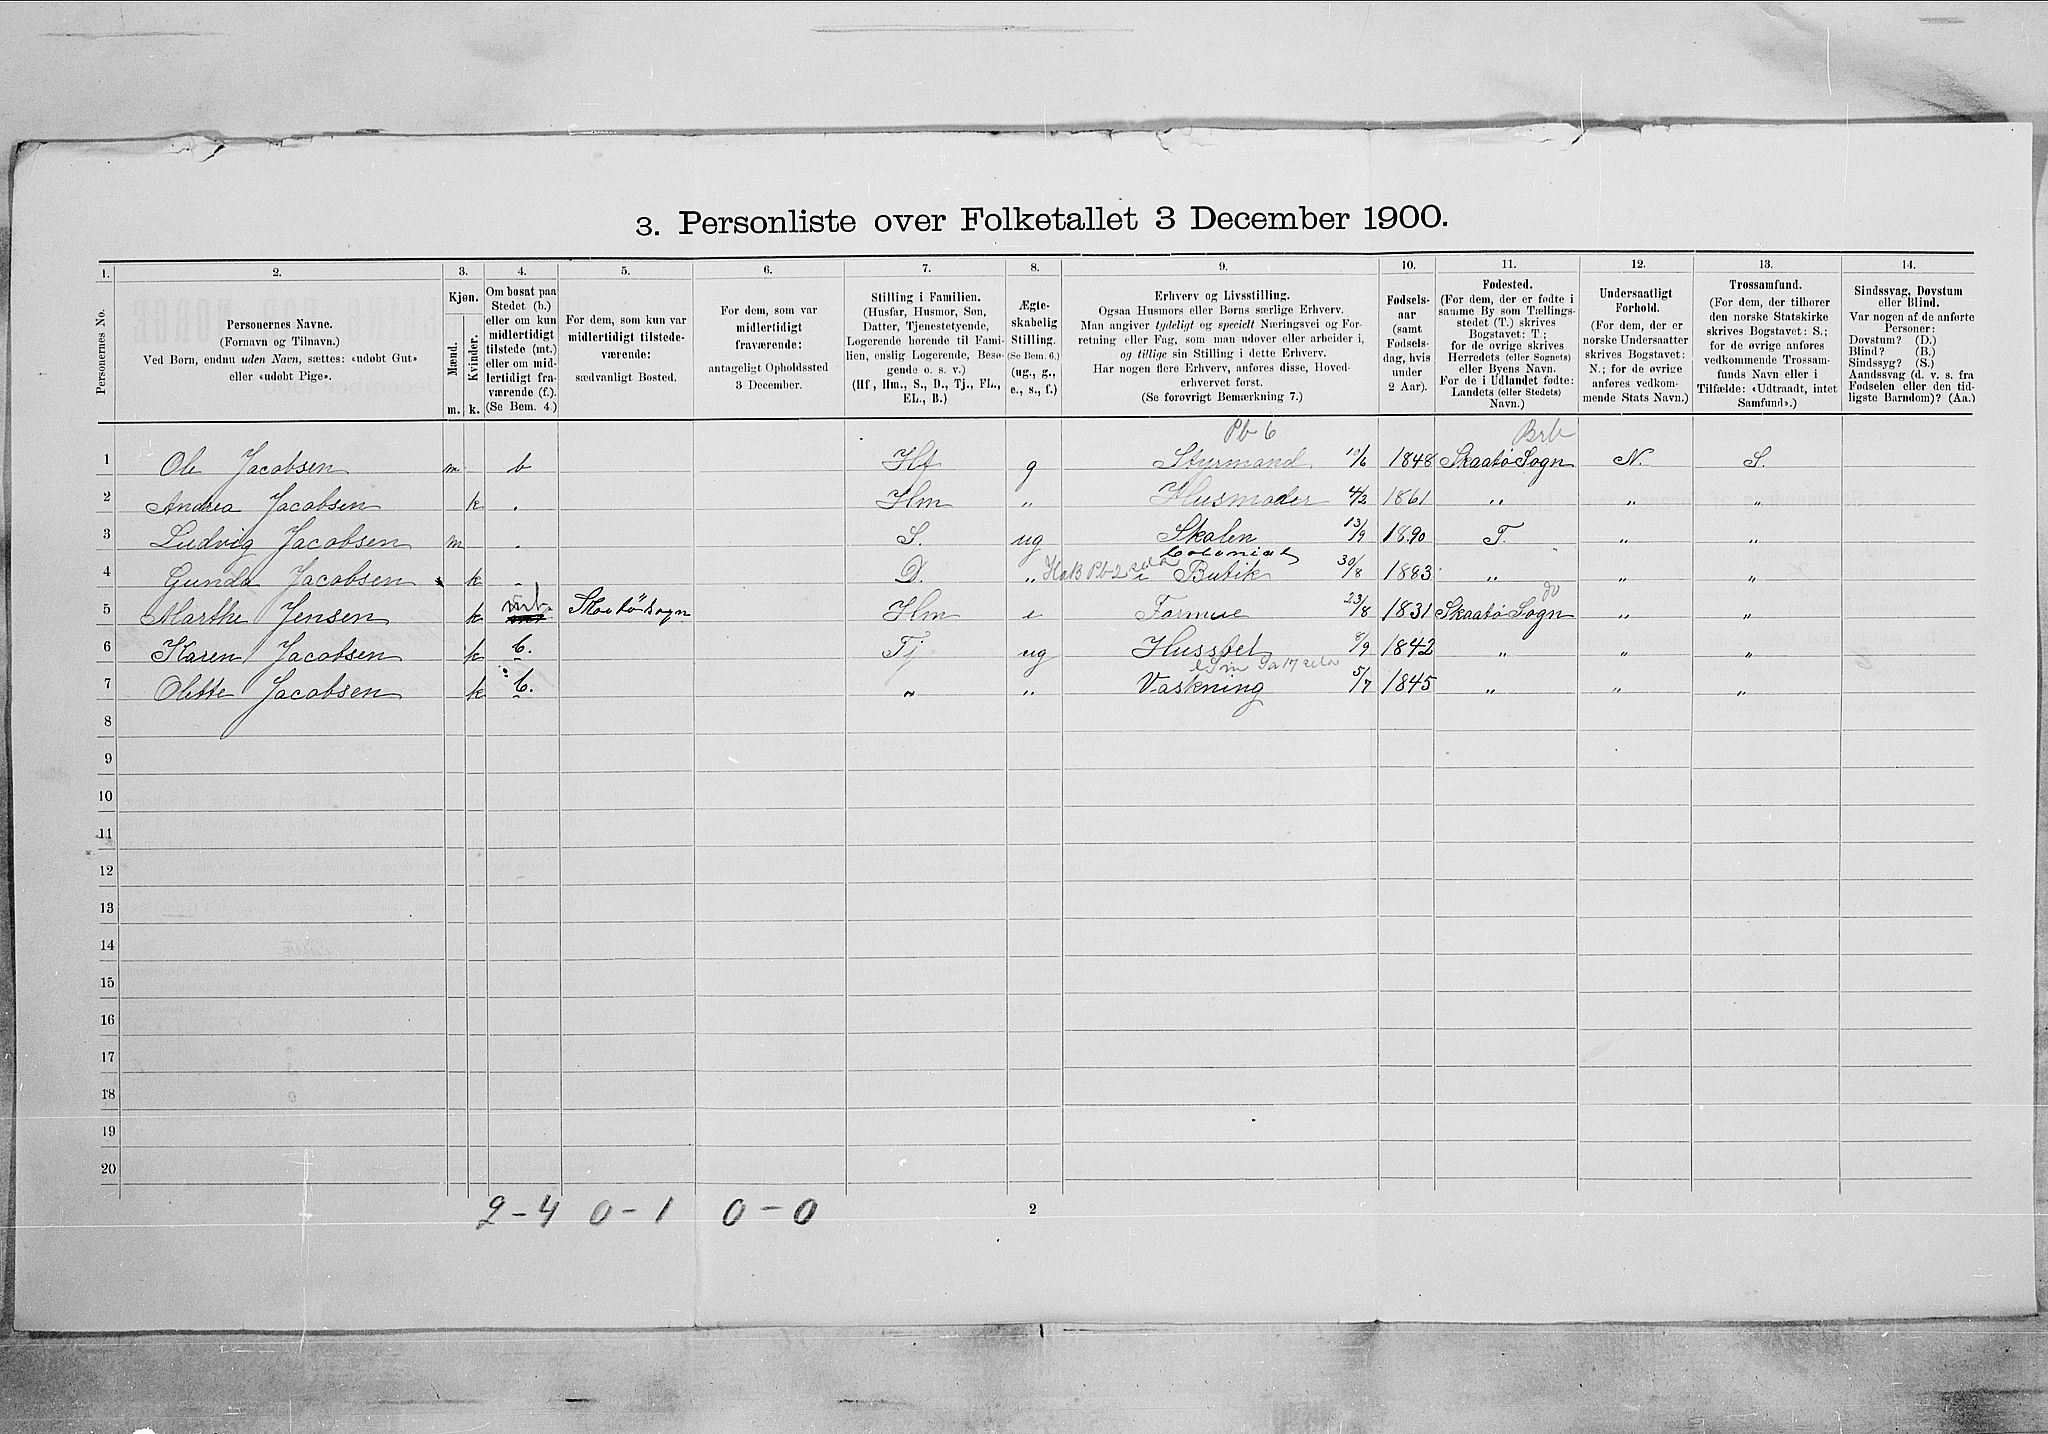 3. Personliste over Folketallet 3 December 1900.
1. 2. 3. 4. 5. 6. 7. 8. 9. 10. 11. 12. 13. 14.
Personernes No.
Personernes Navne.
(Fornavn og Tilnavn.)
Ved Børn, endnu uden Navn, sættes: «udøbt Gut»
eller «udøbt Pige».
Kjøn.
Mænd. Kvinder.
m. k.
Om bosat paa
Stedet (b.)
eller om kun
midlertidigt
tilstede (mt.)
eller om mid-
lertidigt fra-
værende (f.).
(Se Bem. 4.)
For dem, som kun var
midlertidigt tilstede-
værende:
sædvanligt Bosted.
For dem, som var
midlertidigt
fraværende:
antageligt Opholdssted
3 December.
Stilling i Familien.
(Husfar, Husmor, Søn,
Datter, Tjenestetyende,
Logerende hørende til Fami-
lien, enslig Logerende, Besø-
gende o. s. v.)
(Hf., Hm., S., D., Tj., FL.,
EL., B.)
Ægte-
skabelig
Stilling.
(Se Bem. 6.)
(ug., g.,
e., s., f.)
Erhverv og Livsstilling.
Ogsaa Husmors eller Børns særlige Erhverv.
Man angiver tydeligt og specielt Næringsvei og For-
retning eller Fag, som man udover eller arbeider i,
og tillige sin Stilling i dette Erhverv.
Har nogen flere Erhverv, anføres disse, Hoved-
erhvervet først.
(Se forøvrigt Bemærkning 7.)
Fødsels-
aar
(samt
Fødsels-
dag, hvis
under
2 Aar).
Fødested.
(For dem, der er fødte i
samme By som Tællings-
stedet (T.) skrives
Bogstavet: T.;
for de øvrige skrives
Herredets (eller Sognets)
eller Byens Navn.
For de i Udlandet fødte:
Landets (eller Stedets)
Navn.)
Undersaatligt
Forhold.
(For dem, der er
norske Undersaatter
skrives Bogstavet:
N.; for de øvrige
anføres vedkom-
mende Stats Navn.)
Trossamfund.
(For dem, der tilhører
den norske Statskirke
skrives Bogstavet: S.;
for de øvrige anføres
vedkommende Trossam-
funds Navn eller i
Tilfælde: «Udtraadt, intet
Samfund».)
Sindssvag, Døvstum
eller Blind.
Var nogen af de anførte
Personer:
Døvstum? (D.)
Blind? (B.)
Sindssyg? (S.)
Aandssvag (d. v. s. fra
Fødselen eller den tid-
ligste Barndom)? (Aa.)
Pb 6 Brb
1 Ole Jacobsen m b Hf g Styrmand 10/6 1848 Skaatø Sogn N. S.
2 Andrea Jacobsen k . Hm " Husmoder 4/2 1861 " " "
3 Ludvig Jacobsen m . S. ug Skolen 13/9 1890 T. " "
Colonial
4 Gunda Jacobsen k . D. " i Butik 30/8 1883 " " "
do
5 Marthe Jensen k mt. Skatö sogn Hm e Formue 23/8 1831 Skaatø Sogn " "
6 Karen Jacobsen k b. Tj ug Husstel 8/9 1842 " " "
7 Olette Jacobsen k b. " " Vaskning 5/7 1845 " " "
8
9
10
11
12
13
14
15
16
17
18
19
20
2-4 0-1 0-0 2